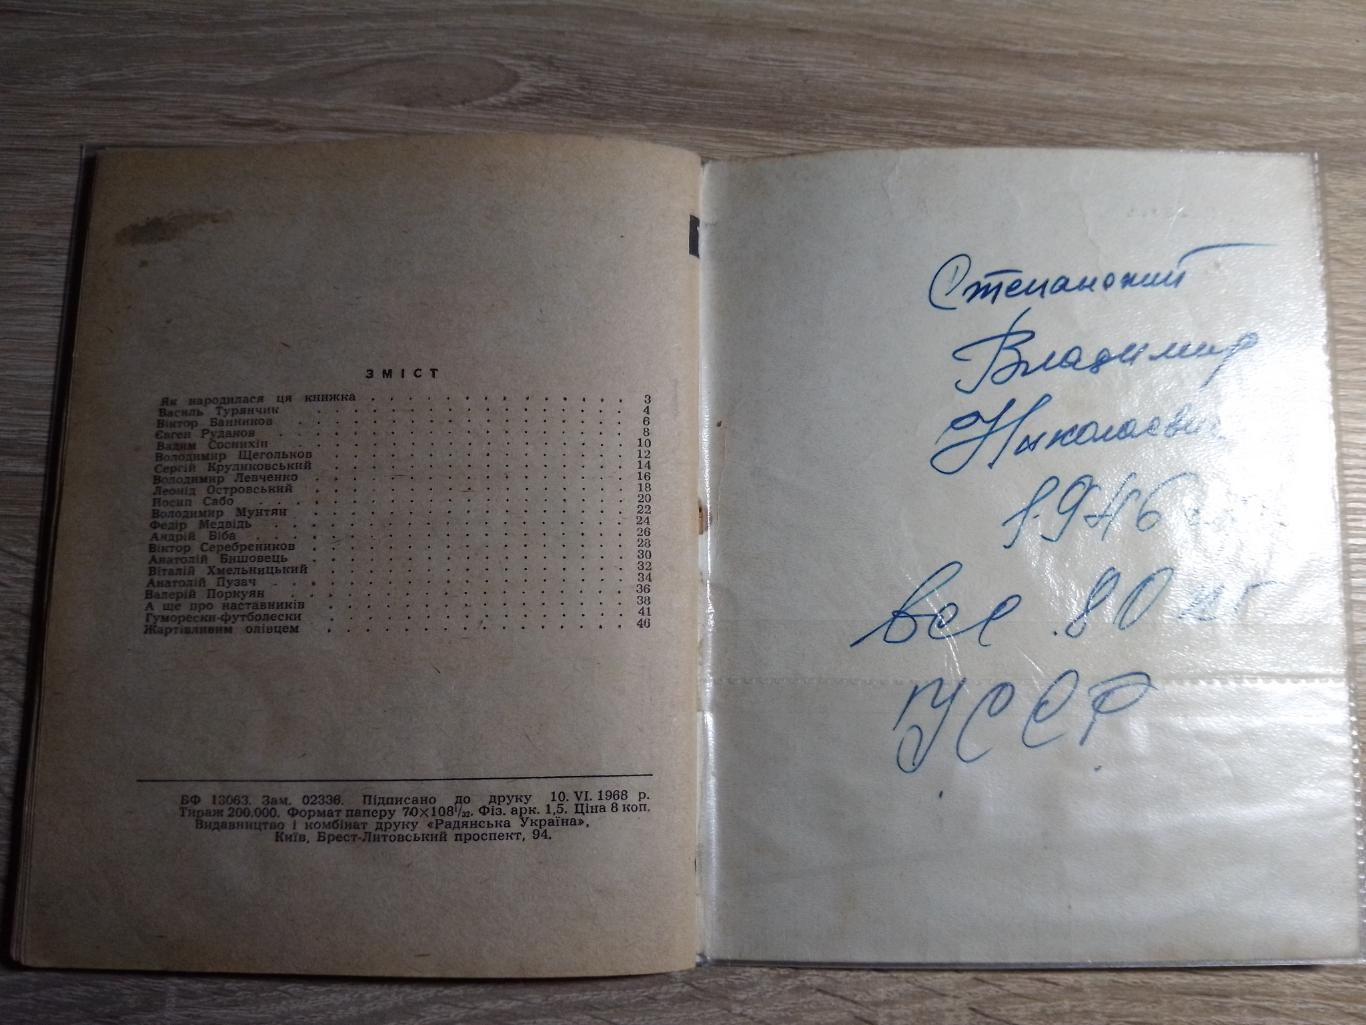 ЗМІСТ
Як народилася ця книжка 3
Василь Турянчик 4
Віктор Банников 6
Євген Рудаков 8
Вадим Соснихін 10
Володимир Щегольков 12
Сергій Круликовський 14
Володимир Левченко 16
Леонід Островський 18
Йосип Сабо 20
Володимир Мунтян 22
Федір Медвідь 24
Андрій Біба 26
Віктор Серебреников 28
Анатолій Бишовець 30
Віталій Хмельницький 32
Анатолій Пузач 34
Валерій Поркуян 36
А ще про наставників 38
Гуморески-футболески 41
Жартівливим олівцем 46
БФ 13063. Зам. 02336. Підписано до друку 10. VI. 1968 р.
Тираж 200.000. Формат паперу 70×108¹/₃₂. Фіз. арк. 1,5. Ціна 8 коп.
Видавництво і комбінат друку «Радянська Україна»,
Київ, Брест-Литовський проспект, 94.
Степанский
Владимир
1946
вес 80 кг
УССР